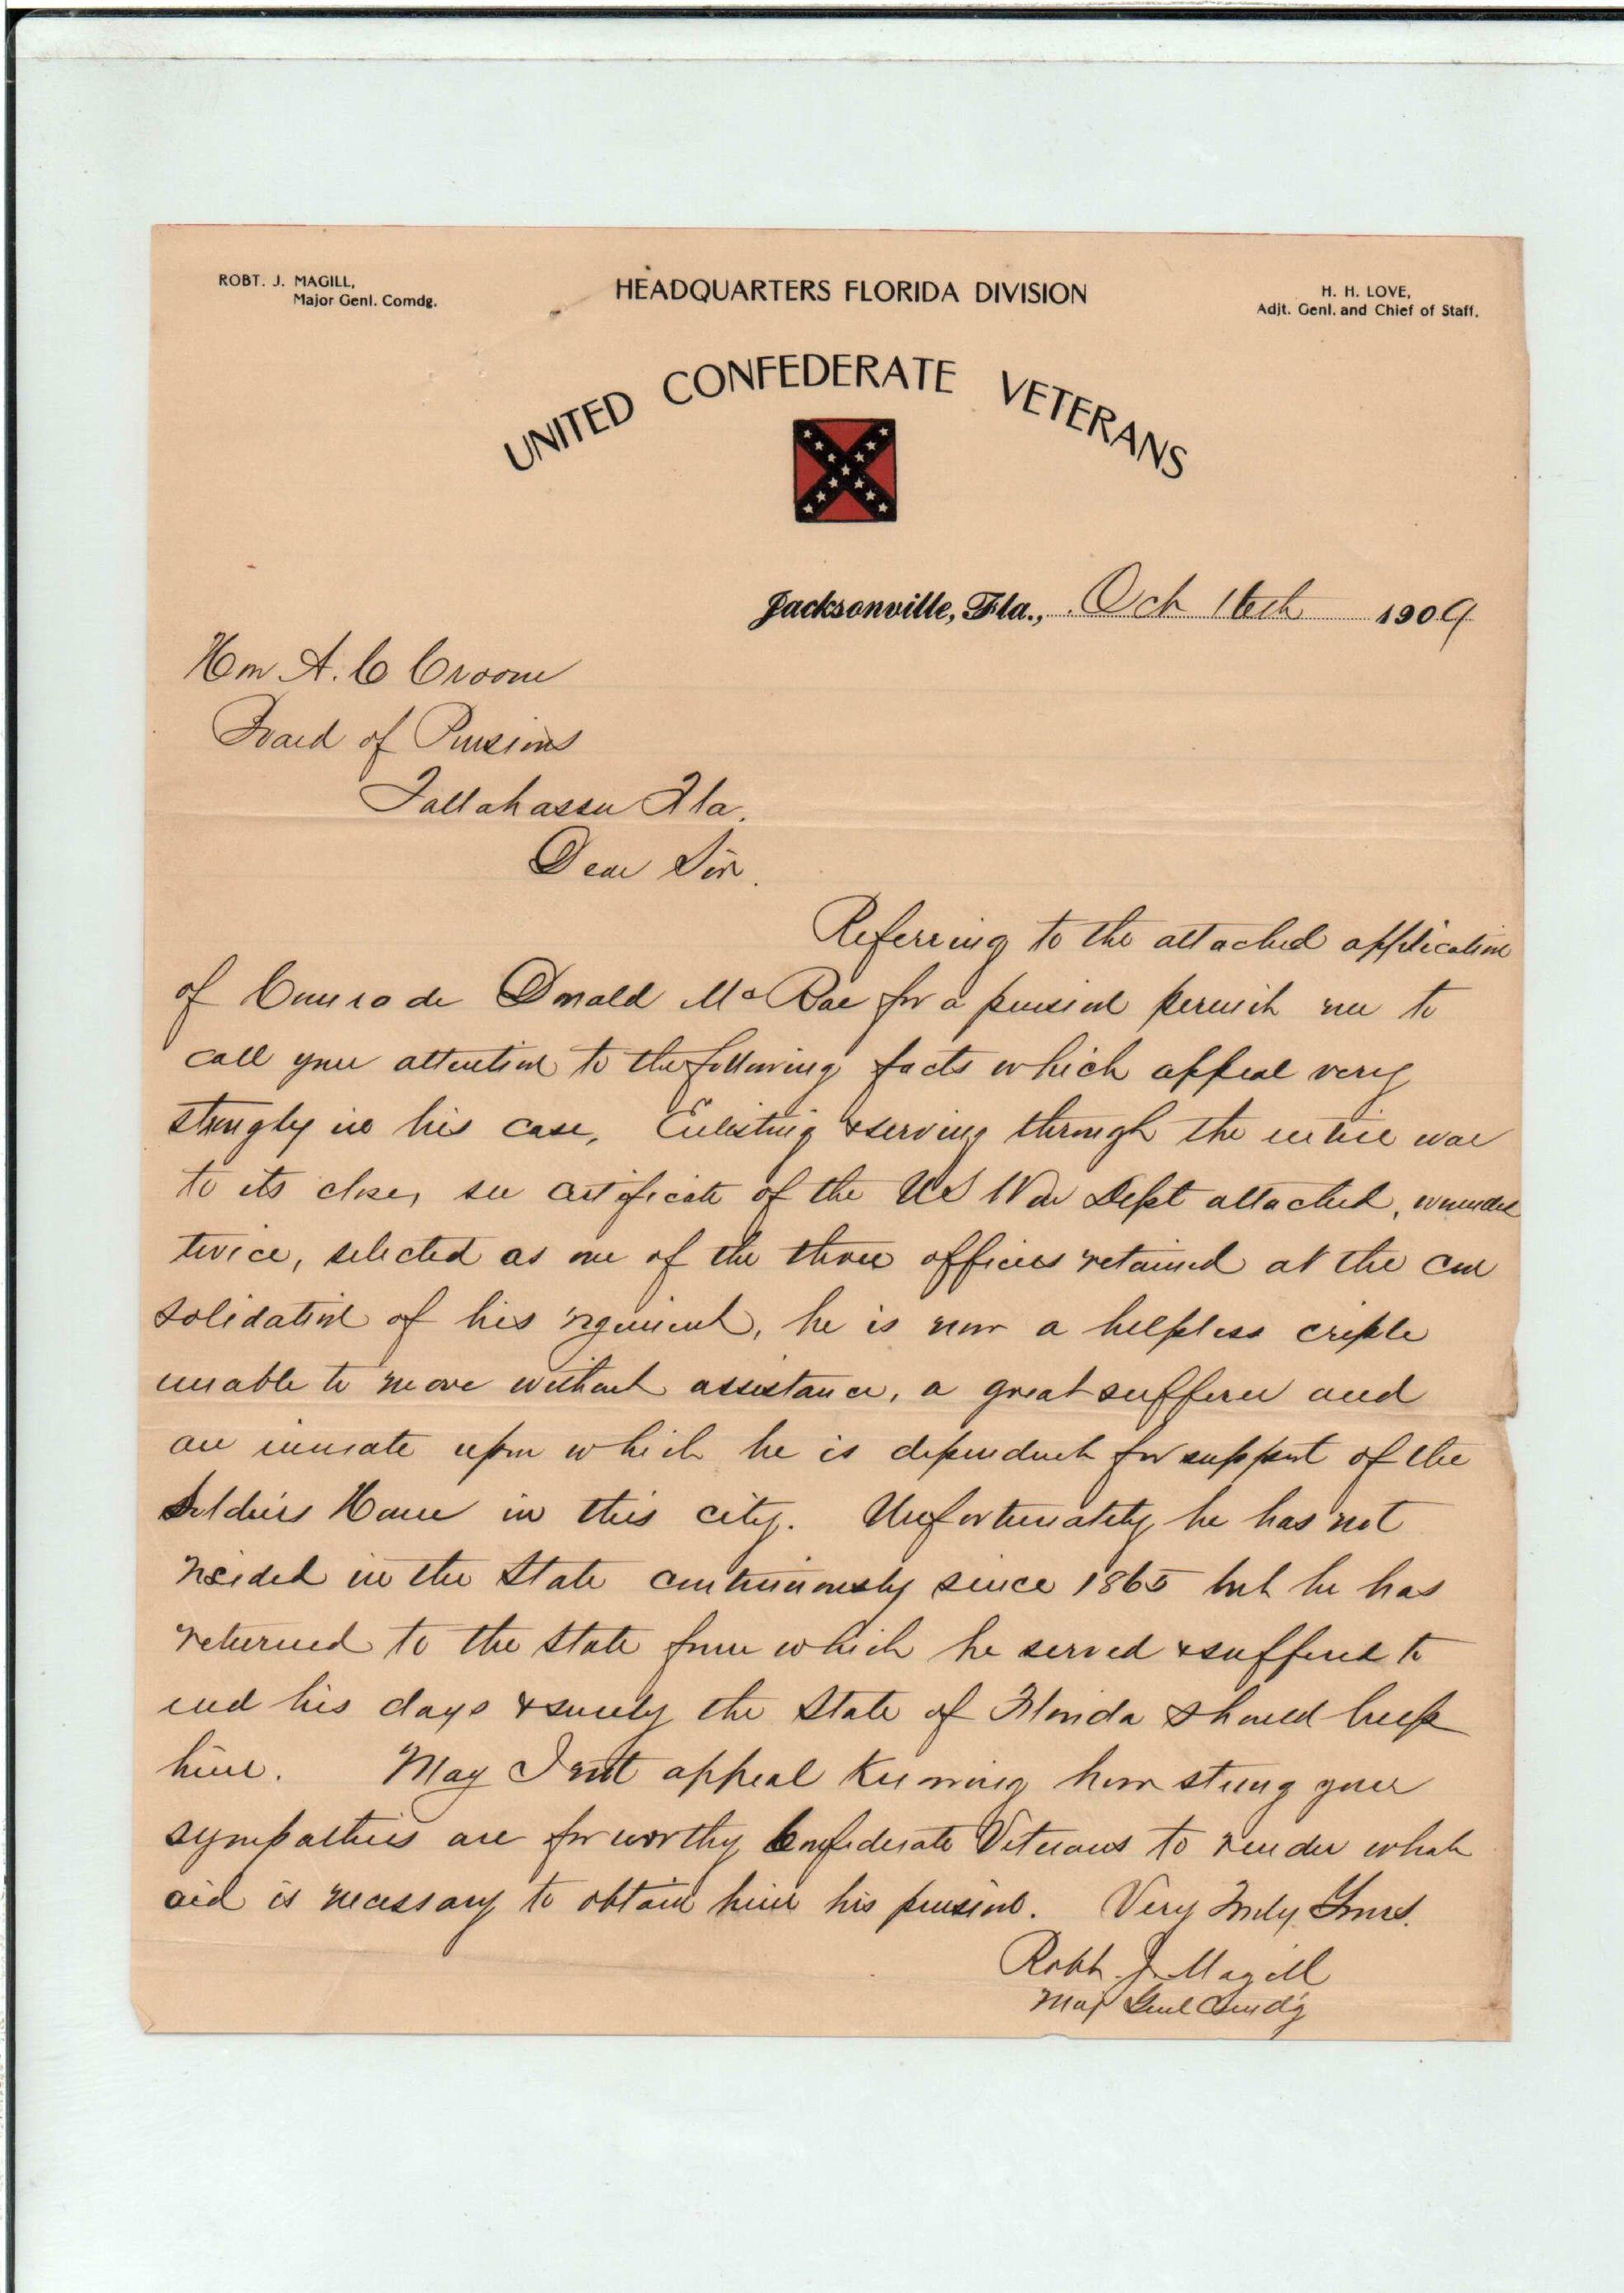 ROBT. J. MAGILL,
Major Genl. Comdg.
HEADQUARTERS FLORIDA DIVISION
H. H. LOVE,
Adjt. Genl. and Chief of Staff.
UNITED CONFEDERATE VETERANS
Jacksonville, Fla., Oct 16th 1909
Hon A. C Croom
Board of Pensions
Tallahassee Fla.
Dear Sir.
Referring to the attached application
of Comrade Donald McRae for a pension permit me to
call your attention to the following facts which appeal very
strongly in his case, Enlisting & serving through the entire war
to its close, see certificate of the US War Dept attached, wounded
twice, selected as one of the three officers retained at the con
solidation of his regiment, he is now a helpless criple
unable to move without assistance, a great sufferer and
an inmate upon which he is dependent for support of the
Soldiers Home in this city. Unfortunately he has not
resided in the State continuously since 1865 but he has
returned to the State from which he served & suffered to
end his days & surely the State of Florida should help
him. May I not appeal knowing how strong your
sympathies are for worthy Confederate Veterans to render what
aid is necessary to obtain him his pension. Very Truly Yours.
Robt. J. Magill
Maj Genl Comd'g